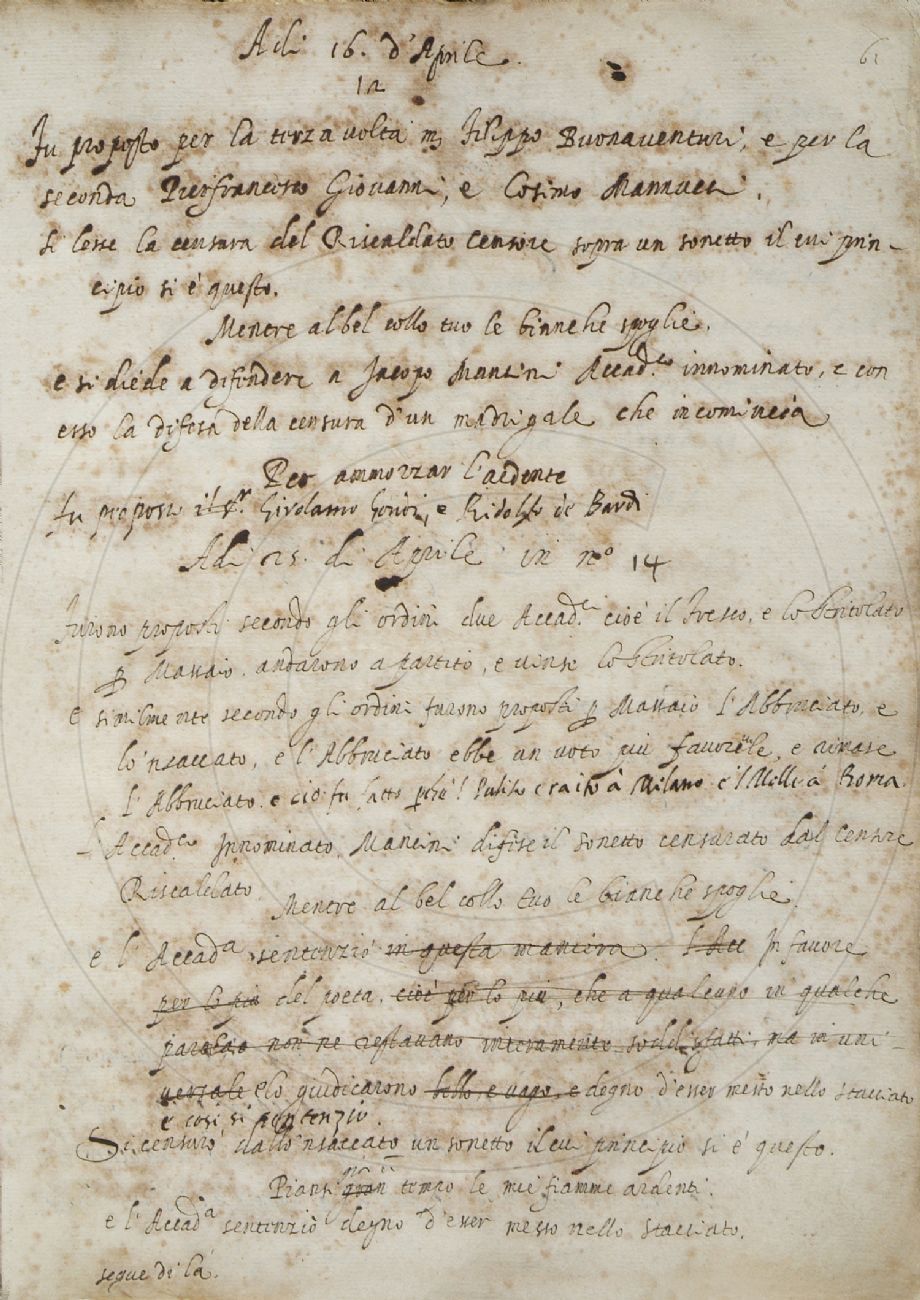 Adi 16. d'Aprile.
61
12
Fu proposto per la terza volta mʒ Filippo Buonaventuri, e per la
seconda Pierfrancesco Giovanni, e Cosimo Mannucci.
Si lesse la censura del Riscaldato censore sopra un sonetto il cui prin-
cipio si è questo.
Mentre al bel collo tuo le bianche spoglie.
e si diede a difendere a Jacopo Mancini Accad.co innominato, e con
esso la difesa della censura d'un madrigale che incomincia
Per ammorzar l'ardente
fu proposto il Sr. Girolamo e Ridolfo de Bardi
Adi 25. di Aprile in no 14
Furono proposti secondo gli ordini due Accad.ci cioè il Fresco, e lo Stritolato
p Massaio. andarono a partito, e vinse lo Stritolato.
e similmente secondo gli ordini furono proposti p Massaio l'Abbruciato, e
lo 'nsaccato, e l'Abbruciato ebbe un voto più favorevole, e rimase
l'Abbruciato. e ciò fu fatto pchè l Pulito era ito à Milano e 'l à Roma.
L'Accad.co Innominato Mancini difese il sonetto censurato dal censore
Riscaldato.
Mentre al bel collo tuo le bianche spoglie.
e l'Accad.a sentenziò in questa maniera. l'Acc In favore
per lo più del poeta. cioè per lo più, che a qualcuno in qualche
parola non ne restavano interamente soddisfatti, ma in uni-
versale e lo giudicarono bello e vago, e degno d'esser messo nello stacciato
e così si sentenziò.
Si censurò dallo 'nsaccato un sonetto il cui principio si è questo.
Piansi gran tempo le mie fiamme ardenti.
e l'Accad.a sentenziò degno d'esser messo nello stacciato.
segue di là.